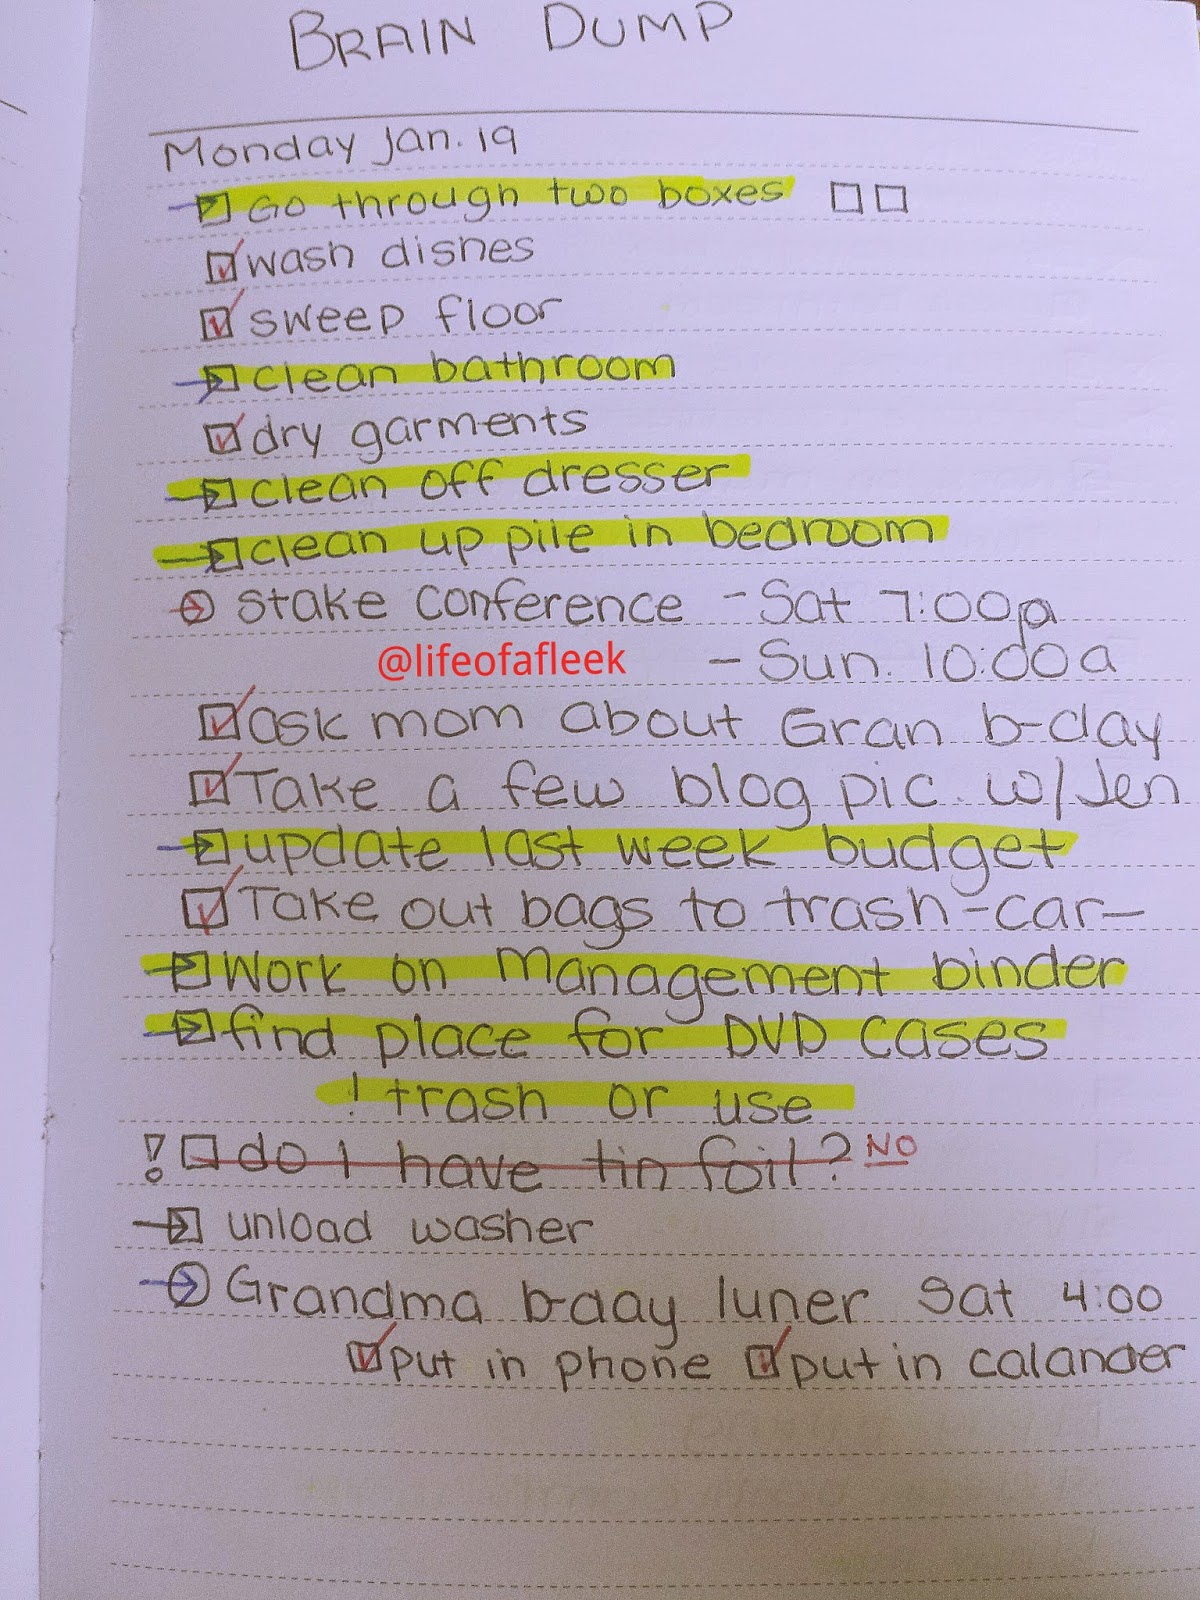 BRAIN DUMP
Monday Jan. 19
Go through two boxes
wash dishes
sweep floor
clean bathroom
dry garments
clean off dresser
clean up pile in bedroom
stake conference - Sat 7:00p
@lifeofafleek - Sun. 10:00a
ask mom about Gran b-day
Take a few blog pic. w/Jen
update last week budget
Take out bags to trash -car-
Work on management binder
find place for DVD cases
! trash or use
! do I have tin foil? NO
unload washer
Grandma b-day luner Sat 4:00
put in phone put in calander